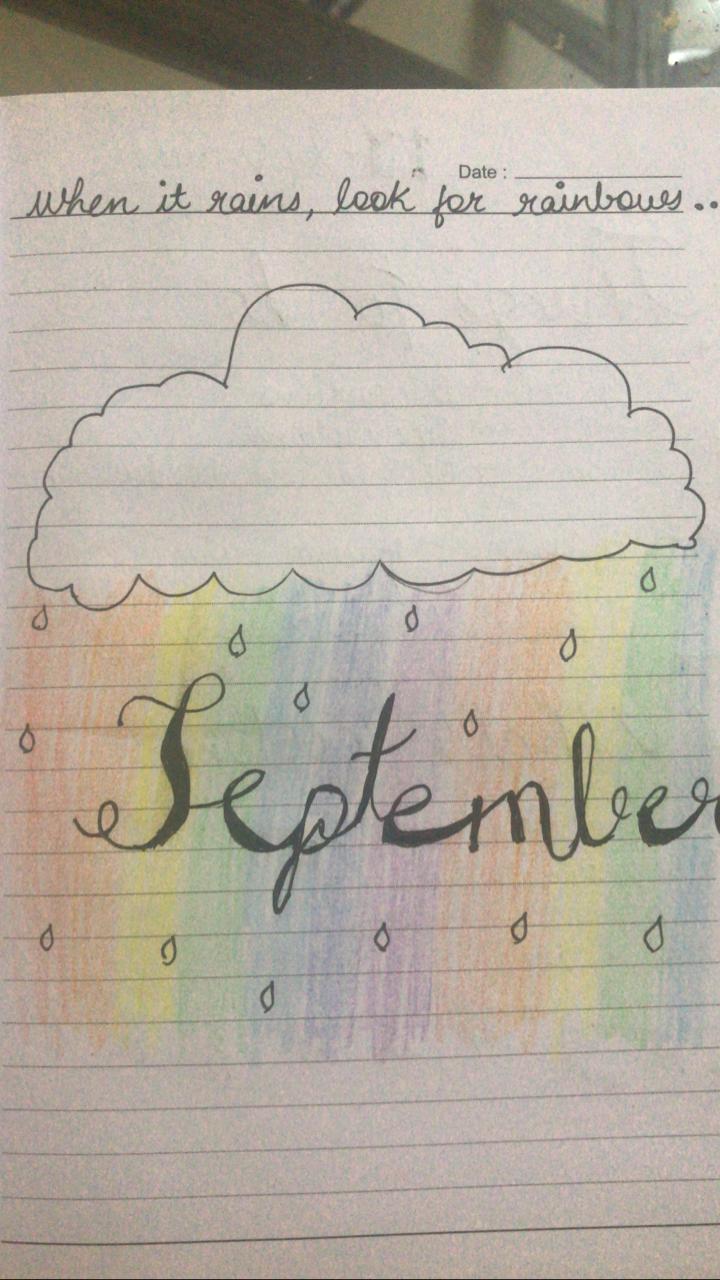 Date :
when it rains, look for rainbows..
September